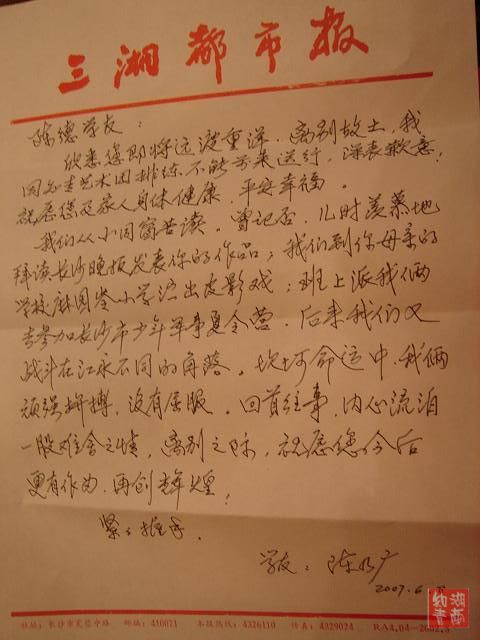 三湘都市报
陈德学友：
欣悉您即将远渡重洋，离别故土，我
因在艺术团排练不能前来送行，深表歉意，
祝愿您及家人身体健康，平安幸福。
我们从小同窗苦读。曾记否，儿时羡慕地
拜读长沙晚报发表你的作品；我们到你母亲的
学校麻园岺小学演出皮影戏；班上派我俩
去参加长沙市少年军事夏令营，后来我们又
战斗在江永不同的角落。坎坷命运中，我俩
顽强拼搏，没有屈服。回首往事，内心流泪
一股难舍之情，离别之际，祝愿您今后
更有作为，再创辉煌！
紧紧握手。
学友：陈
2007.6.
社址：长沙市芙蓉中路 邮编：410071 本报热线：4326110 传真：4329024 RA4.04-2002.3
湖西